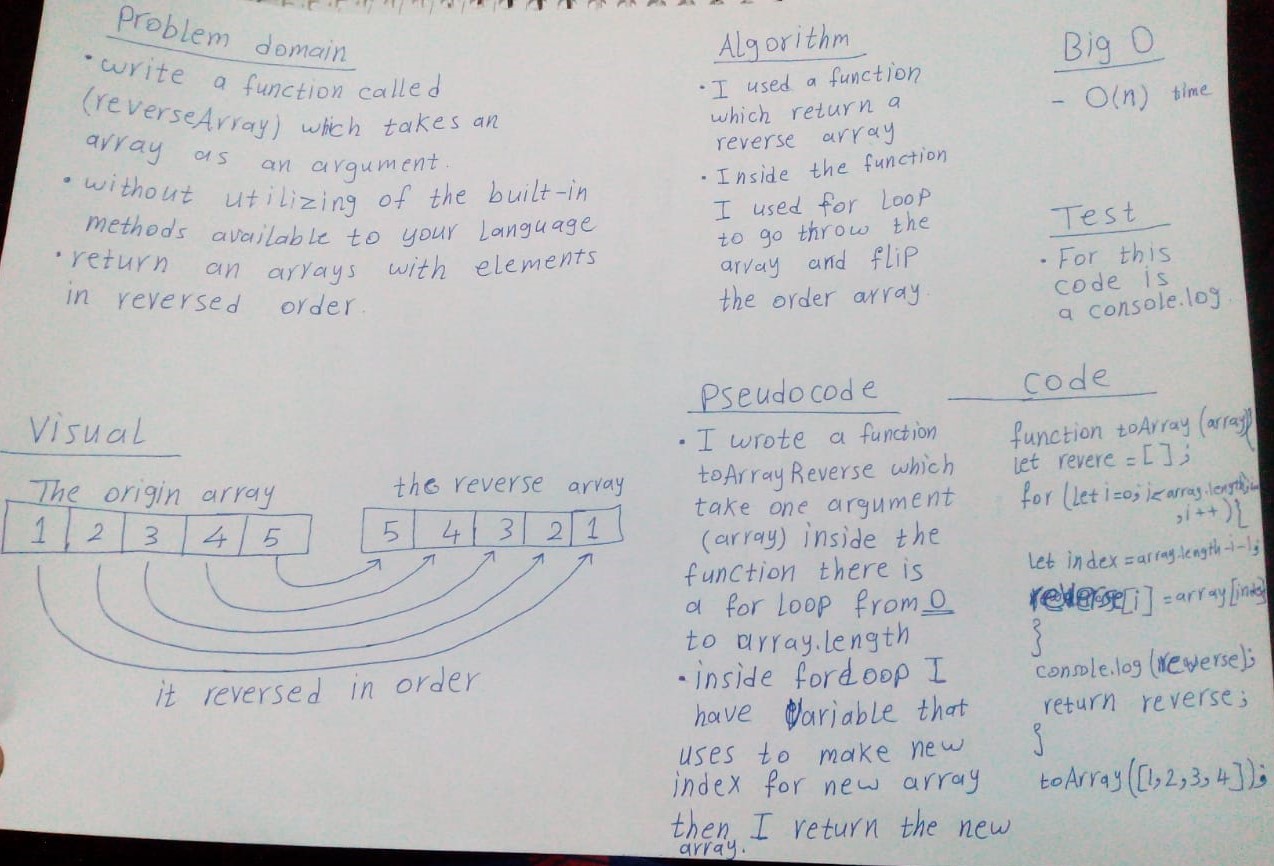 Problem domain
• write a function called
(reverseArray) which takes an
array as an argument.
• without utilizing of the built-in
methods available to your language
• return an arrays with elements
in reversed order.
Algorithm
• I used a function
which return a
reverse array
• Inside the function
I used for loop
to go throw the
array and flip
the order array.
Big O
- O(n) time
Test
• For this
code is
a console.log
Visual
The origin array
1 2 3 4 5
the reverse array
5 4 3 2 1
it reversed in order
Pseudocode
• I wrote a function
toArrayReverse which
take one argument
(array) inside the
function there is
a for loop from 0
to array.length
• inside for loop I
have variable that
uses to make new
index for new array
then I return the new
array.
code
function toArray (array){
let revere = [];
for (let i=0; i<array.length;
; i++){
let index = array.length-i-1;
reverse[i] = array[index]
}
console.log (reverse);
return reverse;
}
toArray([1,2,3,4]);